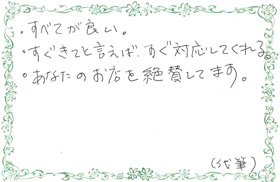 ・すべてが良い。
・すぐきてと言えば、すぐ対応してくれる。
・あなたのお店を絶賛してます。
(代筆)